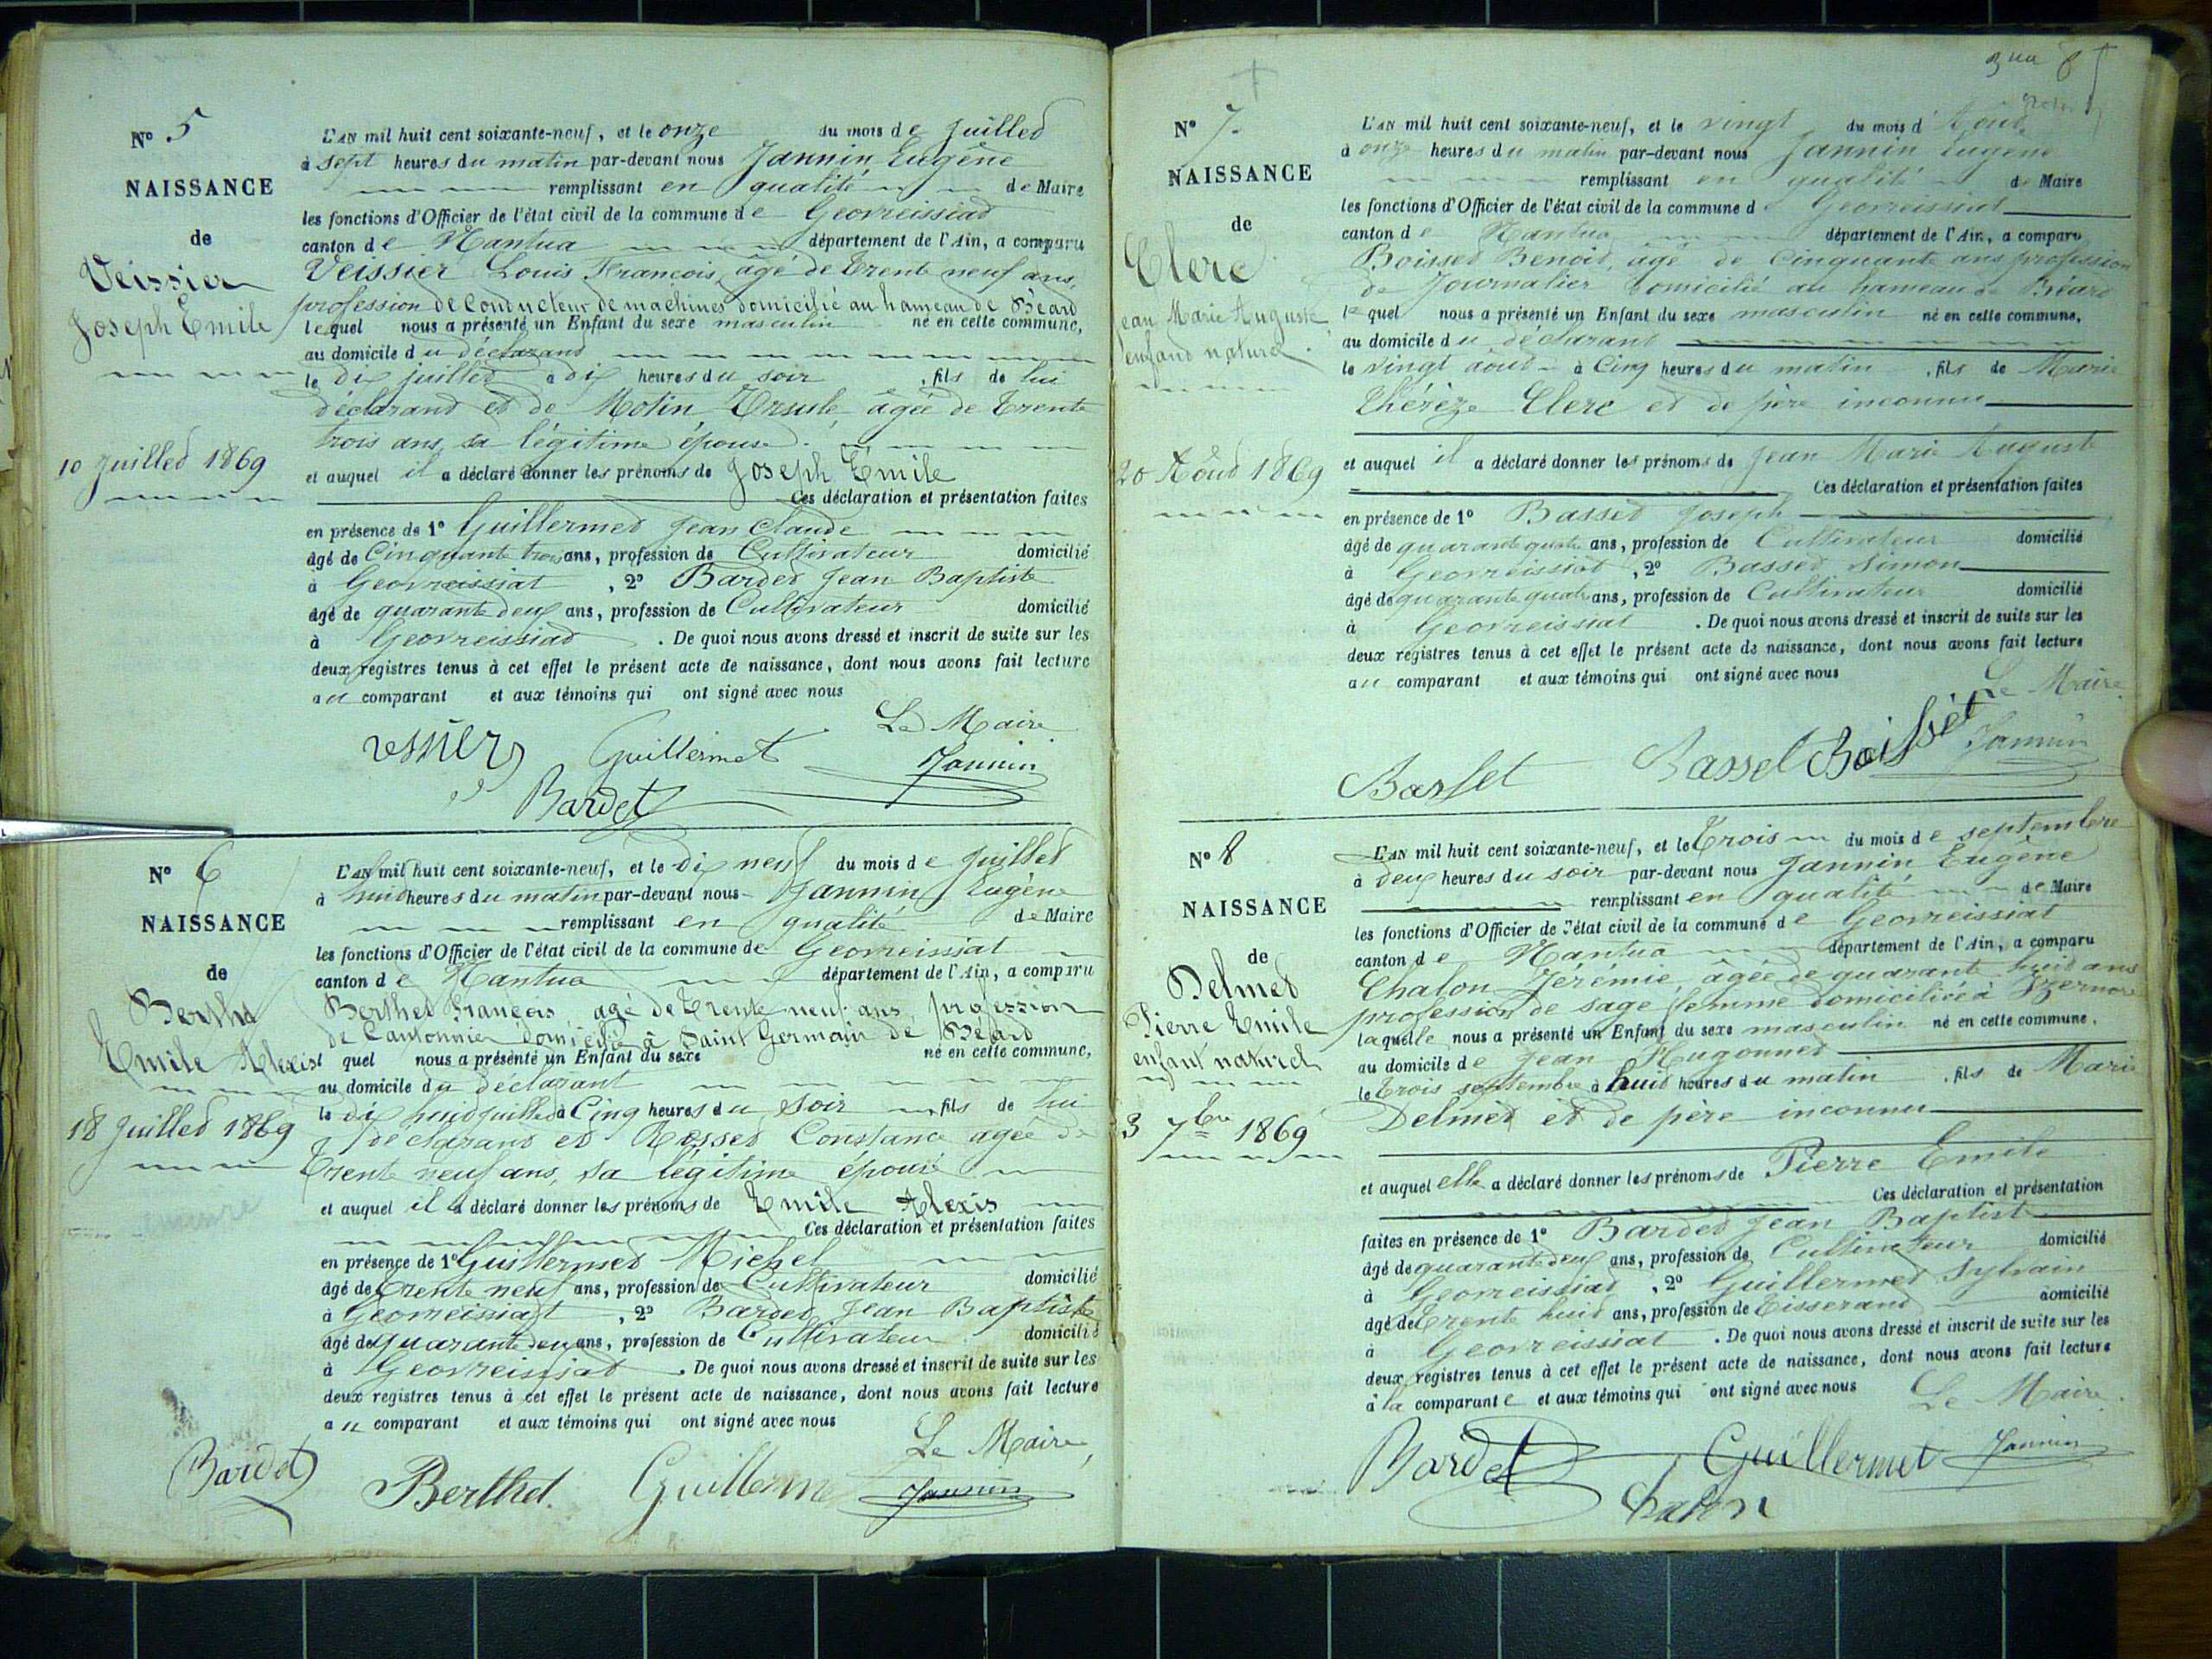 N° 5
NAISSANCE
de
Veissier
Joseph Emile
10 Juilled 1869
L'AN mil huit cent soixante-neuf, et le onze du mois de Juilled
à sept heures du matin par-devant nous Jannin Eugène
remplissant en qualité de Maire
les fonctions d'Officier de l'état civil de la commune de Geovreissiad
canton de Nantua département de l'Ain, a comparu
Veissier Louis François, âgé de trente neuf ans,
profession de Conducteur de machines domicilié au hameau de Béard
lequel nous a présenté un Enfant du sexe masculin né en cette commune,
au domicile du déclarand
le dix juilled à dix heures du soir , fils de lui
déclarand et de Motin Ursule âgée de trente
trois ans, sa légitime épouse.
et auquel il a déclaré donner les prénoms de Joseph Emile
Ces déclaration et présentation faites
en présence de 1° Guillermed Jean Claude
âgé de Cinquante trois ans, profession de Cultivateur domicilié
à Geovreissiat , 2° Barded Jean Baptiste
âgé de quarante deux ans, profession de Cultivateur domicilié
à Geovreissiad . De quoi nous avons dressé et inscrit de suite sur les
deux registres tenus à cet effet le présent acte de naissance, dont nous avons fait lecture
au comparant et aux témoins qui ont signé avec nous
Le Maire
Guillermet Jannin
Bardet
N° 6
NAISSANCE
de
Berthed
Emile Alexis
18 Juilled 1869
L'AN mil huit cent soixante-neuf, et le dix neuf du mois de Juilled
à huid heures du matin par-devant nous Jannin Eugène
remplissant en qualité de Maire
les fonctions d'Officier de l'état civil de la commune de Geovreissiat
canton de Nantua département de l'Ain, a comparu
Berthed François âgé de trente neuf ans, profession
de Cantonnier domicilié à Saint Germain de Béard
l quel nous a présenté un Enfant du sexe né en cette commune,
au domicile du déclarant
le dix huid juilled à Cinq heures du soir fils de lui
déclarand ed Rossed Constance agée de
trente neuf ans, sa légitime épouse
et auquel il a déclaré donner les prénoms de Emile Alexis
Ces déclaration et présentation faites
en présence de 1° Guillermed Michel
âgé de trente neuf ans, profession de Cultivateur domicilié
à Geovreissiat , 2° Barded Jean Baptiste
âgé de quarante deux ans, profession de Cultivateur domicilié
à Geovreissiat . De quoi nous avons dressé et inscrit de suite sur les
deux registres tenus à cet effet le présent acte de naissance, dont nous avons fait lecture
au comparant et aux témoins qui ont signé avec nous
Le Maire,
Bardet Berthet. Jannin
N° 7
NAISSANCE
de
Clerc
Jean Marie Auguste
enfand naturel
20 Aoûd 1869
L'AN mil huit cent soixante-neuf, et le vingt du mois d'Aoûd
à onze heures du matin par-devant nous Jannin Eugène
remplissant en qualité de Maire
les fonctions d'Officier de l'état civil de la commune de Geovreissiat
canton de Nantua département de l'Ain, a comparu
Boissed Benoid, âgé de Cinquante ans profession
de Journalier domicilié au hameau de Béard
lequel nous a présenté un Enfant du sexe masculin né en cette commune,
au domicile du déclarant
le vingt aoûd à Cinq heures du matin , fils de Marie
Thérèze Clerc et de père inconnu
et auquel il a déclaré donner les prénoms de Jean Marie Auguste
Ces déclaration et présentation faites
en présence de 1° Bassed Joseph
âgé de quarante quatre ans, profession de Cultivateur domicilié
à Geovreissiat , 2° Bassed Simon
âgé de quarante quatre ans, profession de Cultivateur domicilié
à Geovreissiat . De quoi nous avons dressé et inscrit de suite sur les
deux registres tenus à cet effet le présent acte de naissance, dont nous avons fait lecture
au comparant et aux témoins qui ont signé avec nous
Le Maire
Basset Basset Boisset Jannin
N° 8
NAISSANCE
de
Delmed
Pierre Emile
enfant naturel
3 7bre 1869
L'AN mil huit cent soixante-neuf, et le trois du mois de septembre
à deux heures du soir par-devant nous Jannin Eugène
remplissant en qualité de Maire
les fonctions d'Officier de l'état civil de la commune de Geovreissiat
canton de Nantua département de l'Ain, a comparu
Chalon Jérémie, âgée de quarante huid ans
profession de sage femme domiciliée à Izernore
laquelle nous a présenté un Enfant du sexe masculin né en cette commune,
au domicile de Jean Hugonned
le trois septembre à huid heures du matin , fils de Marie
Delmed et de père inconnu
et auquel elle a déclaré donner les prénoms de Pierre Emile
Ces déclaration et présentation
faites en présence de 1° Barded Jean Baptiste
âgé de quarante deux ans, profession de Cultivateur domicilié
à Geovreissiad , 2° Guillermed Sylvain
âgé de trente huid ans, profession de tisserand domicilié
à Geovreissiat . De quoi nous avons dressé et inscrit de suite sur les
deux registres tenus à cet effet le présent acte de naissance, dont nous avons fait lecture
à la comparante et aux témoins qui ont signé avec nous
Le Maire
Bardet Guillermet Jannin
Chalon